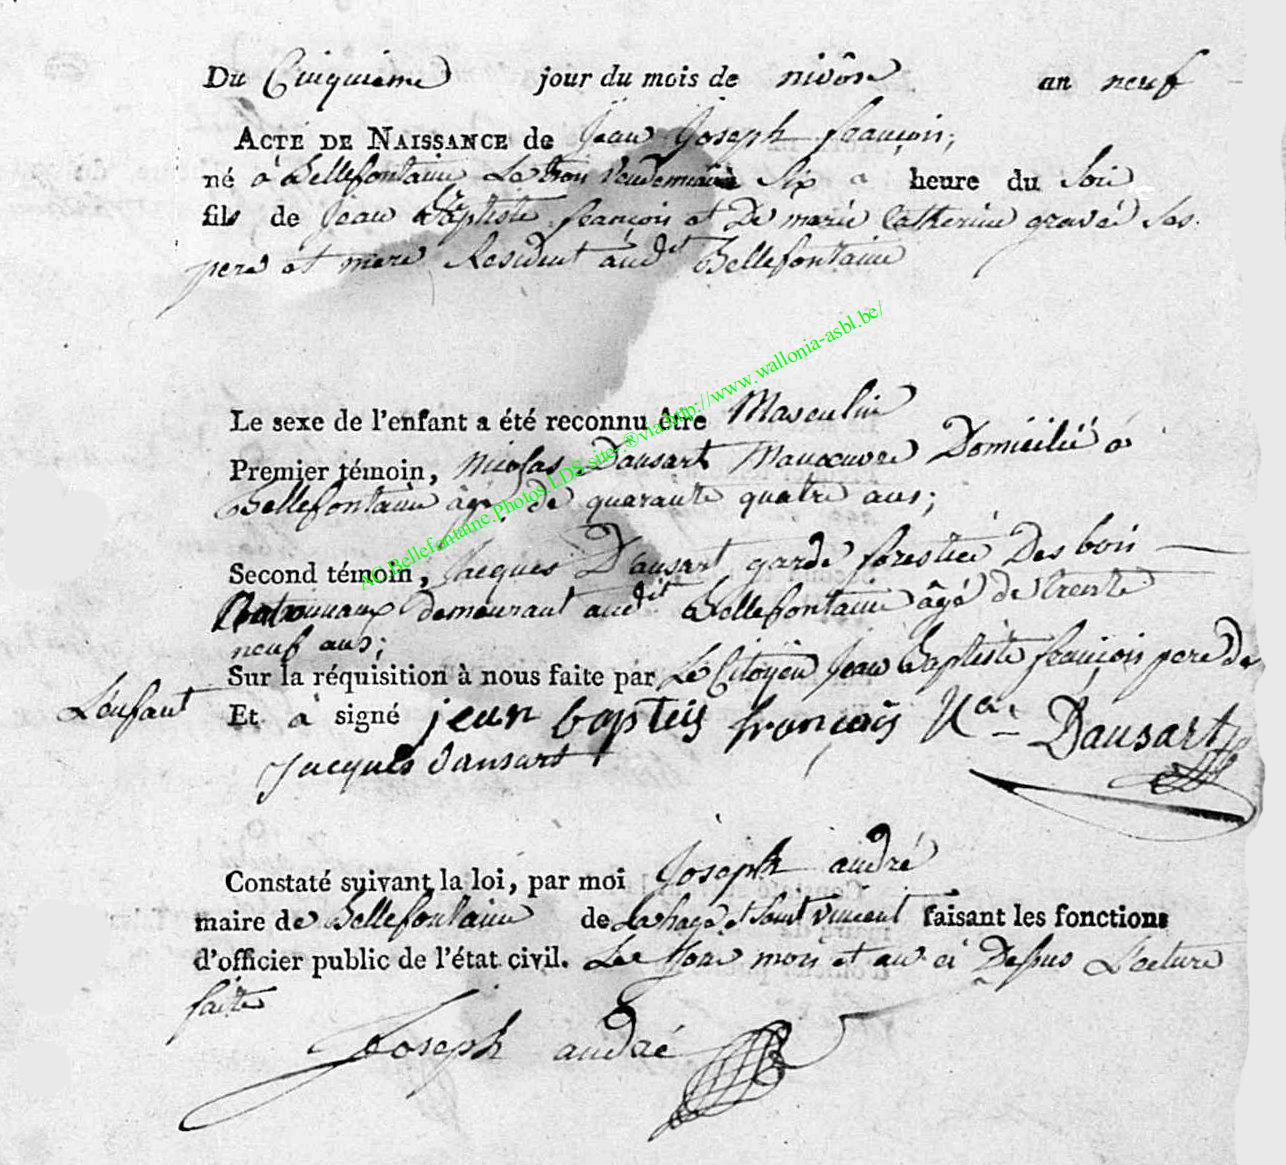 Du Cinquieme jour du mois de nivôse an neuf
ACTE DE NAISSANCE de Jean Joseph françois,
né à Bellefontaine Le trois Vendemiaire Six a heure du Soir
fils de Jean Baptiste françois et De marie Catherine gravé Ses
pere et mere Resident audit Bellefontaine
Le sexe de l'enfant a été reconnu être Masculin
Premier témoin, Nicolas Dausart Manœuvre Domicilié à
Bellefontaine âgé de quarante quatre ans;
Second témoin, Jacques Dausart garde forestier Des bois
demeurant audit Bellefontaine âgé de trente
neuf ans;
Sur la réquisition à nous faite par Le Citoyen Jean Baptiste françois pere de
L'enfant Et à signé jean bapteis françois Nas Dausart
jacques dausart
Constaté suivant la loi, par moi Joseph andré
maire de Bellefontaine de Lahage et Saint Vincent faisant les fonctions
d'officier public de l'état civil. Les Jour mois et an ci Dessus Lecture
faite
Joseph andré
AC.Bellefontaine.Photos.LDS.suer.®via.http://www.wallonia-asbl.be/